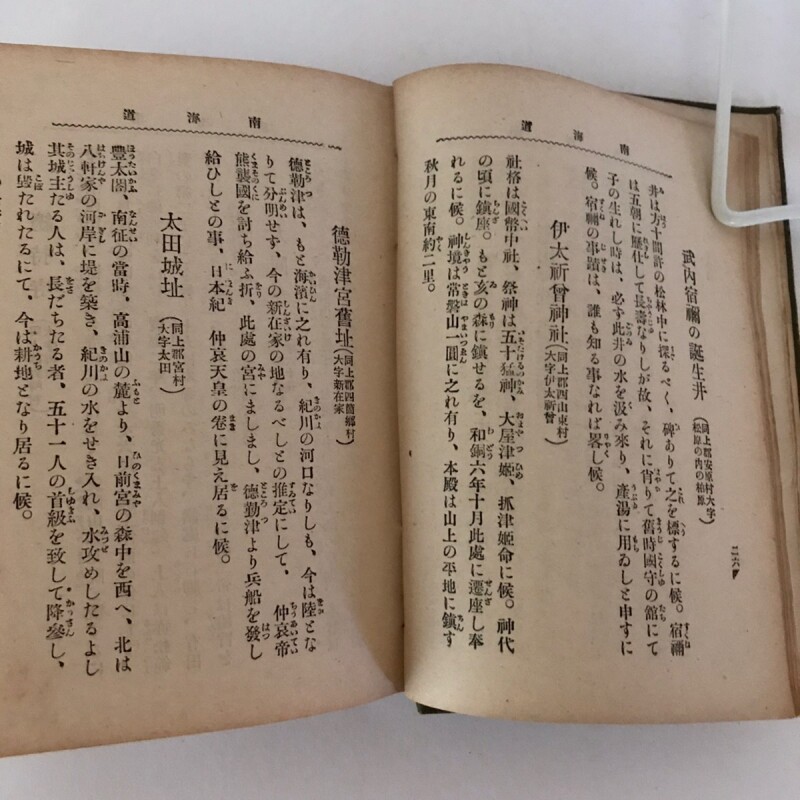 南海道
武内宿禰の誕生井(同上郡安原村大字松原の内の柏原)
井は方十間許の松林中に探るべく、碑ありて之を標するに候。宿禰
は五朝に歴仕して長壽なりしが故、それに肖りて舊時國守の館にて
子の生れし時は、必ず此井の水を汲み來り、產湯に用ゐしと申すに
候。宿禰の事蹟は、誰も知る事なれば畧し候。
伊太祈曾神社(同上郡四山東村大字伊太祈曾)
社格は國幣中社、祭神は五十猛神、大屋津姬、抓津姬命に候。神代
の頃に鎮座。もと亥の森に鎮せるを、和銅六年十月此處に遷座し奉
れるに候。神境は常磐山一圓に之れ有り、本殿は山上の平地に鎮す
秋月の東南約二里。
南海道
德勒津宮舊址(同上郡四箇鄉村大字新在家)
德勒津は、もと海濱に之れ有り、紀川の河口なりしも、今は陸とな
りて分明せず、今の新在家の地なるべしとの推定にして、仲哀帝
熊襲國を討ち給ふ折、此處の宮にましまし、德勒津より兵船を發し
給ひしとの事、日本紀 仲哀天皇の卷に見え居るに候。
太田城址(同上郡宮村大字太田)
豐太閤、南征の當時、高浦山の麓より、日前宮の森中を西へ、北は
八軒家の河岸に堤を築き、紀川の水をせき入れ、水攻めしたるよし
其城主たる人は、長だちたる者、五十一人の首級を致して降參し、
城は毀たれたるにて、今は耕地となり居るに候。